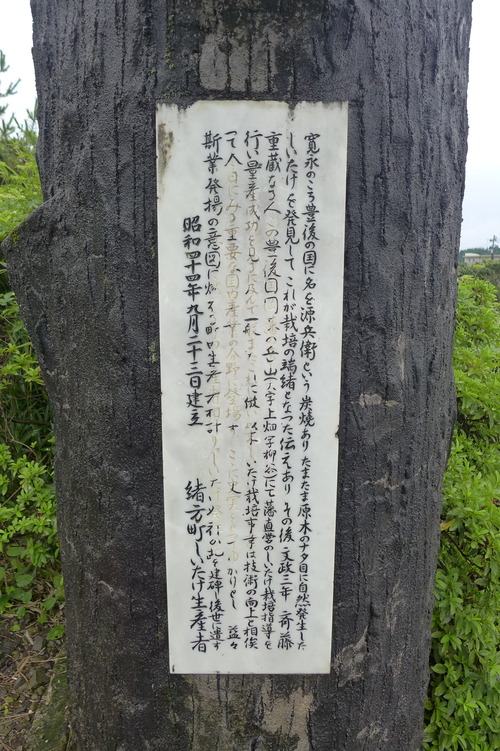 寛永のころ豊後の国に名を源兵衛という炭焼ありたまたま原木のナタ目に自然発生した
しいたけを発見してこれが栽培の端緒となった伝えありその後文政三年斉藤
重蔵なる人この豊後国岡 山 字上畑字柳谷にて藩直営のしいたけ栽培指導を
行い量産成功を 一般またこれに倣い 来しいたけ栽培事業は技術の向上と相俟
って今日にみる重要な国内産業の分野に登場す ここに 益々
斯業発揚の意図に燃 町内生産 を建碑し後世に遺す
昭和四十四年九月二十三日建立 緒方町しいたけ生産者